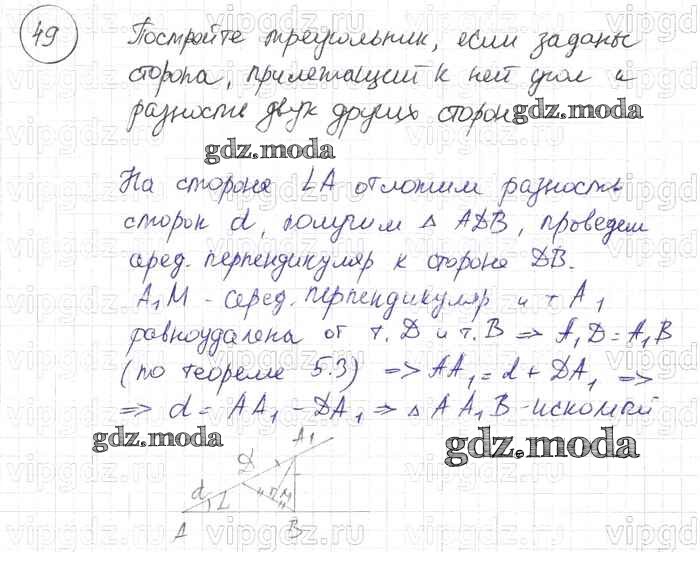 49
Постройте треугольник, если заданы
сторона, прилежащий к ней угол и
разность двух других сторон
gdz.moda
gdz.moda
На стороне LA отложим разность
сторон d, получим △ ADB, проведем
серед. перпендикуляр к стороне DB.
A₁M - серед. перпендикуляр и т A₁
равноудалена от т. D и т. B => A₁D = A₁B
(по теореме 5.3) => AA₁ = d + DA₁ =>
=> d = AA₁ - DA₁ => △ AA₁B - искомый
gdz.moda
gdz.moda
A₁
D
d
M
L
A
B
vipgdz.ru